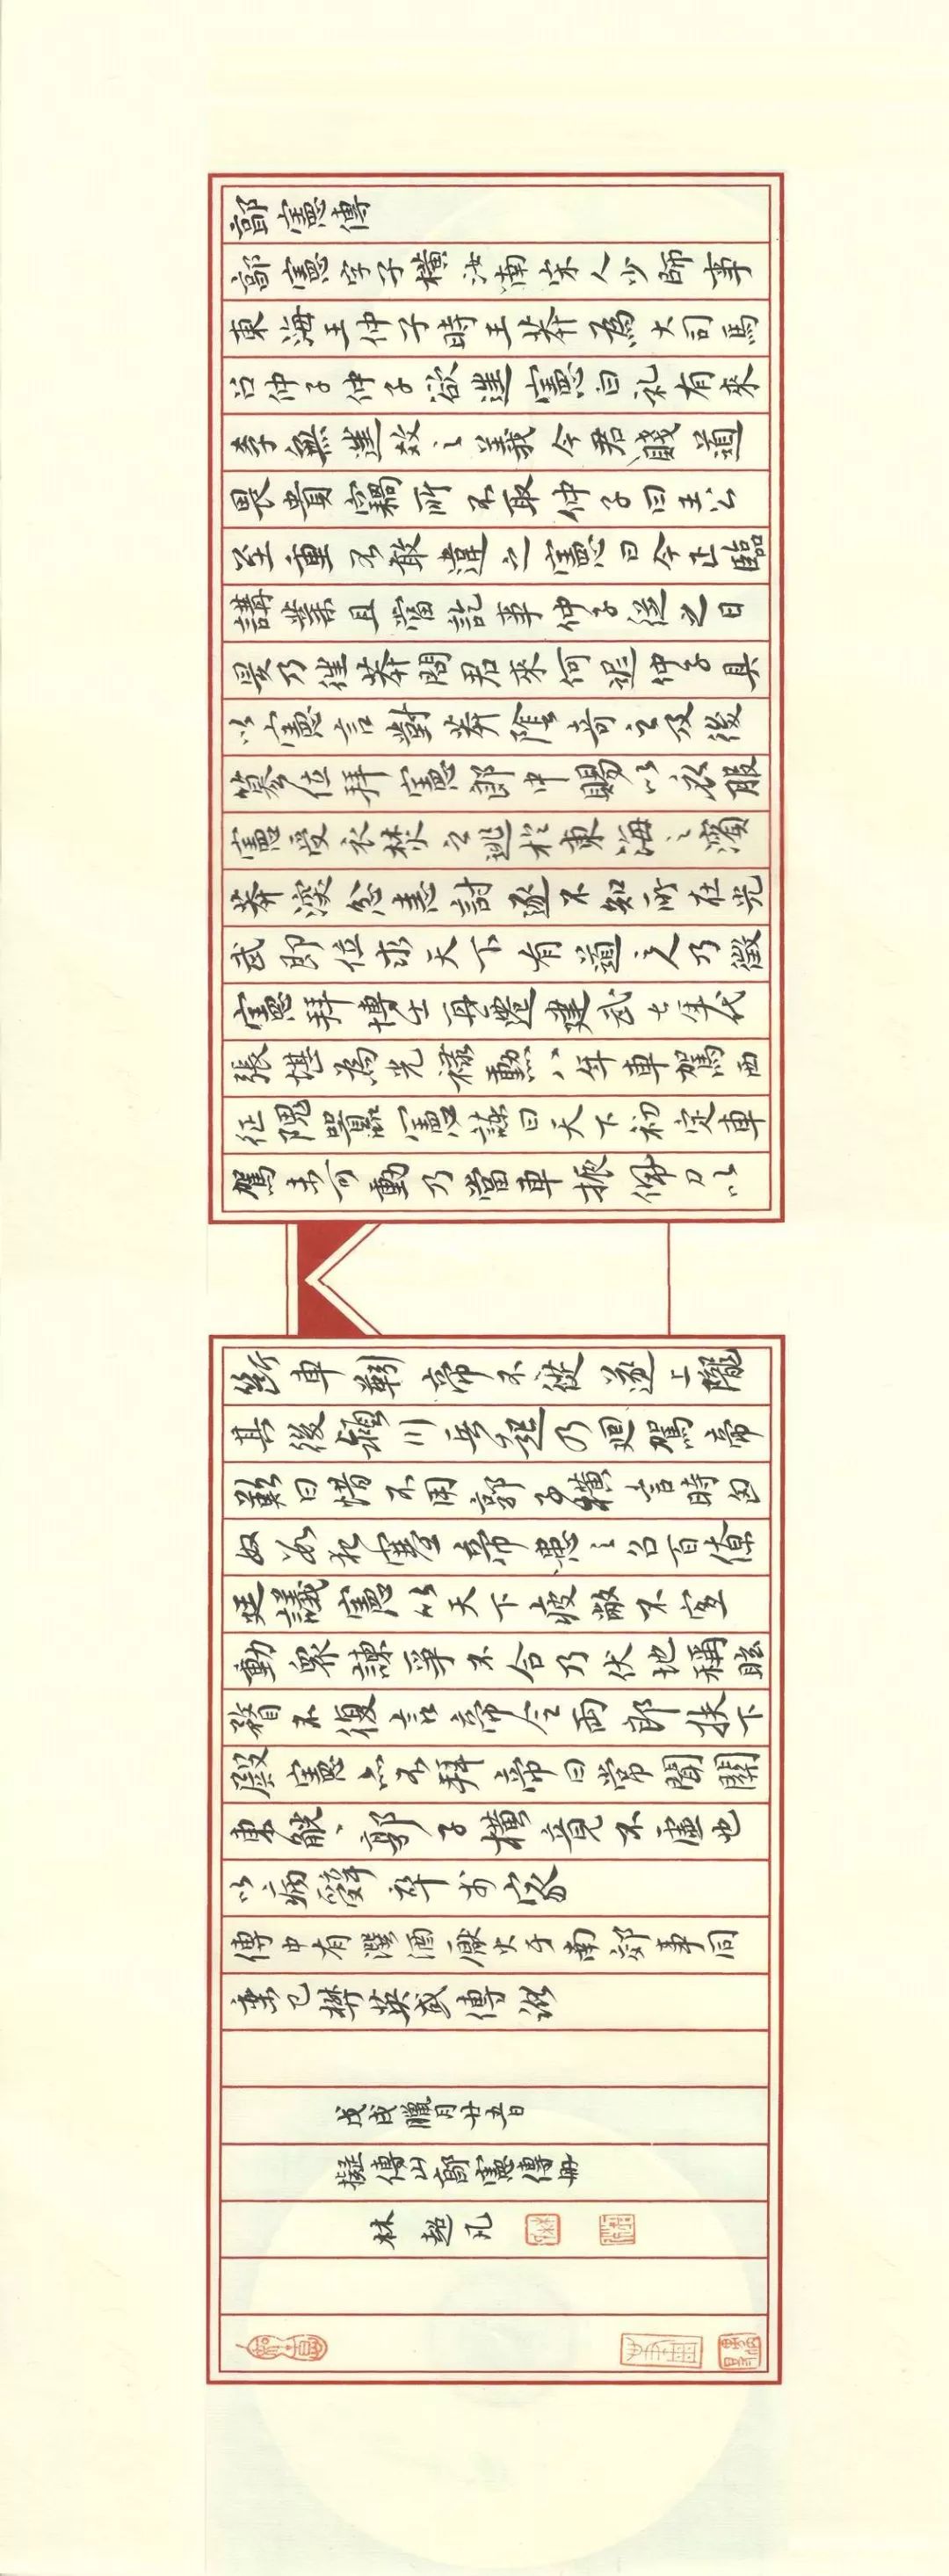 郭憲傳
郭憲字子橫汝南宋人少師事
東海王仲子時王莽為大司馬
召仲子仲子欲進憲白礼有來
李無進教之義今君賤道
畏貴竊所不取仲子曰王公
至重不敢違之憲曰今正臨
講業且當訖事仲子從之日
晏乃往莽問君來何遲仲子具
以憲言對莽陰奇之及後
篡位拜憲郎中賜以衣服
憲受衣焚之逃於東海之濱
莽深忿恚討逐不知所在光
武即位求天下有道之人乃徵
憲拜博士再遷建武七年代
張堪為光祿勳八年車駕西
征隗囂憲諫曰天下初定車
駕未可動乃當車振佩刀以
斷車靷帝不從遂上隴
其後潁川兵起乃迴駕帝
歎曰惜不用郭子橫言時匈
奴數犯塞帝患之召百僚
廷議憲以天下疲敝不宜
動眾諫爭不合乃伏地稱眩
瞀不復言帝令兩郎扶下
殿憲亦不拜帝曰常聞關
東觥、郭子橫竟不虛也
以病辭卒於家
傳中有潠酒厭火于南郊事同
欒巴樊英成傳
戊戌臘月廿五日
擬傅山郭憲傳冊
林超凡